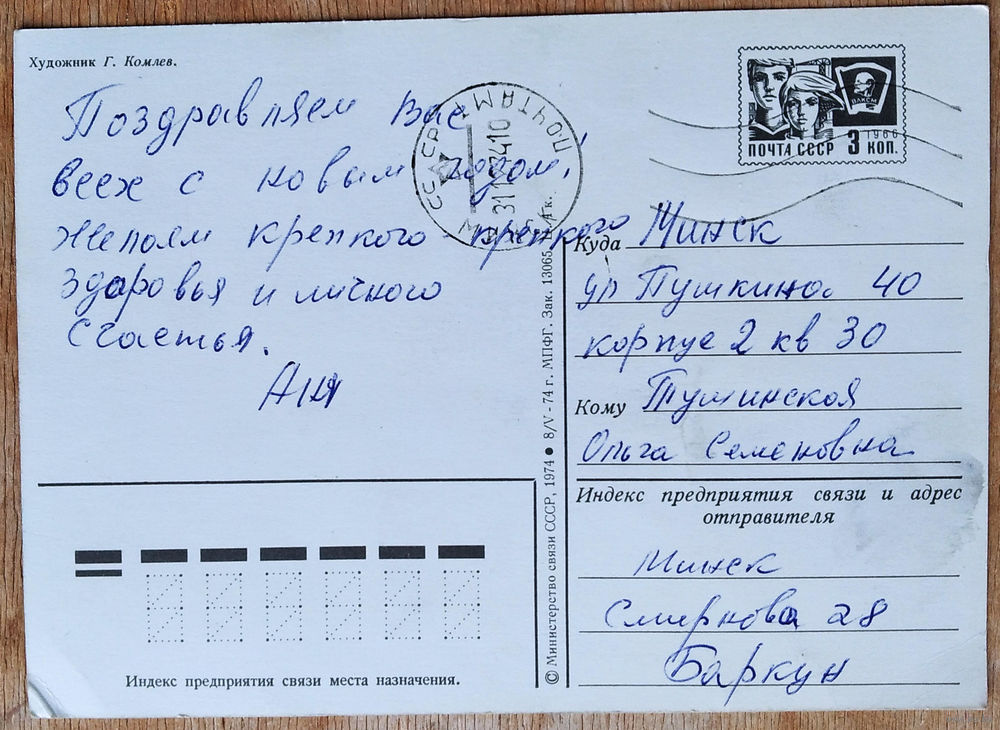 Художник Г. Комлев.
Поздравляем Вас
всех с новым годом,
Желаем крепкого-крепкого
здоровья и личного
счастья.
Аня
ВЛКСМ
1966
ПОЧТА СССР 3 КОП.
ПОЧТАМТ
Куда Минск
ул Пушкина 40
корпус 2 кв 30
Кому Тушинская
Ольга Семеновна
Индекс предприятия связи и адрес
отправителя
Минск
Смирнова 28
Баркун
Индекс предприятия связи места назначения.
© Министерство связи СССР, 1974 ● 8/V-74 г. МПФГ. Зак. 13065.